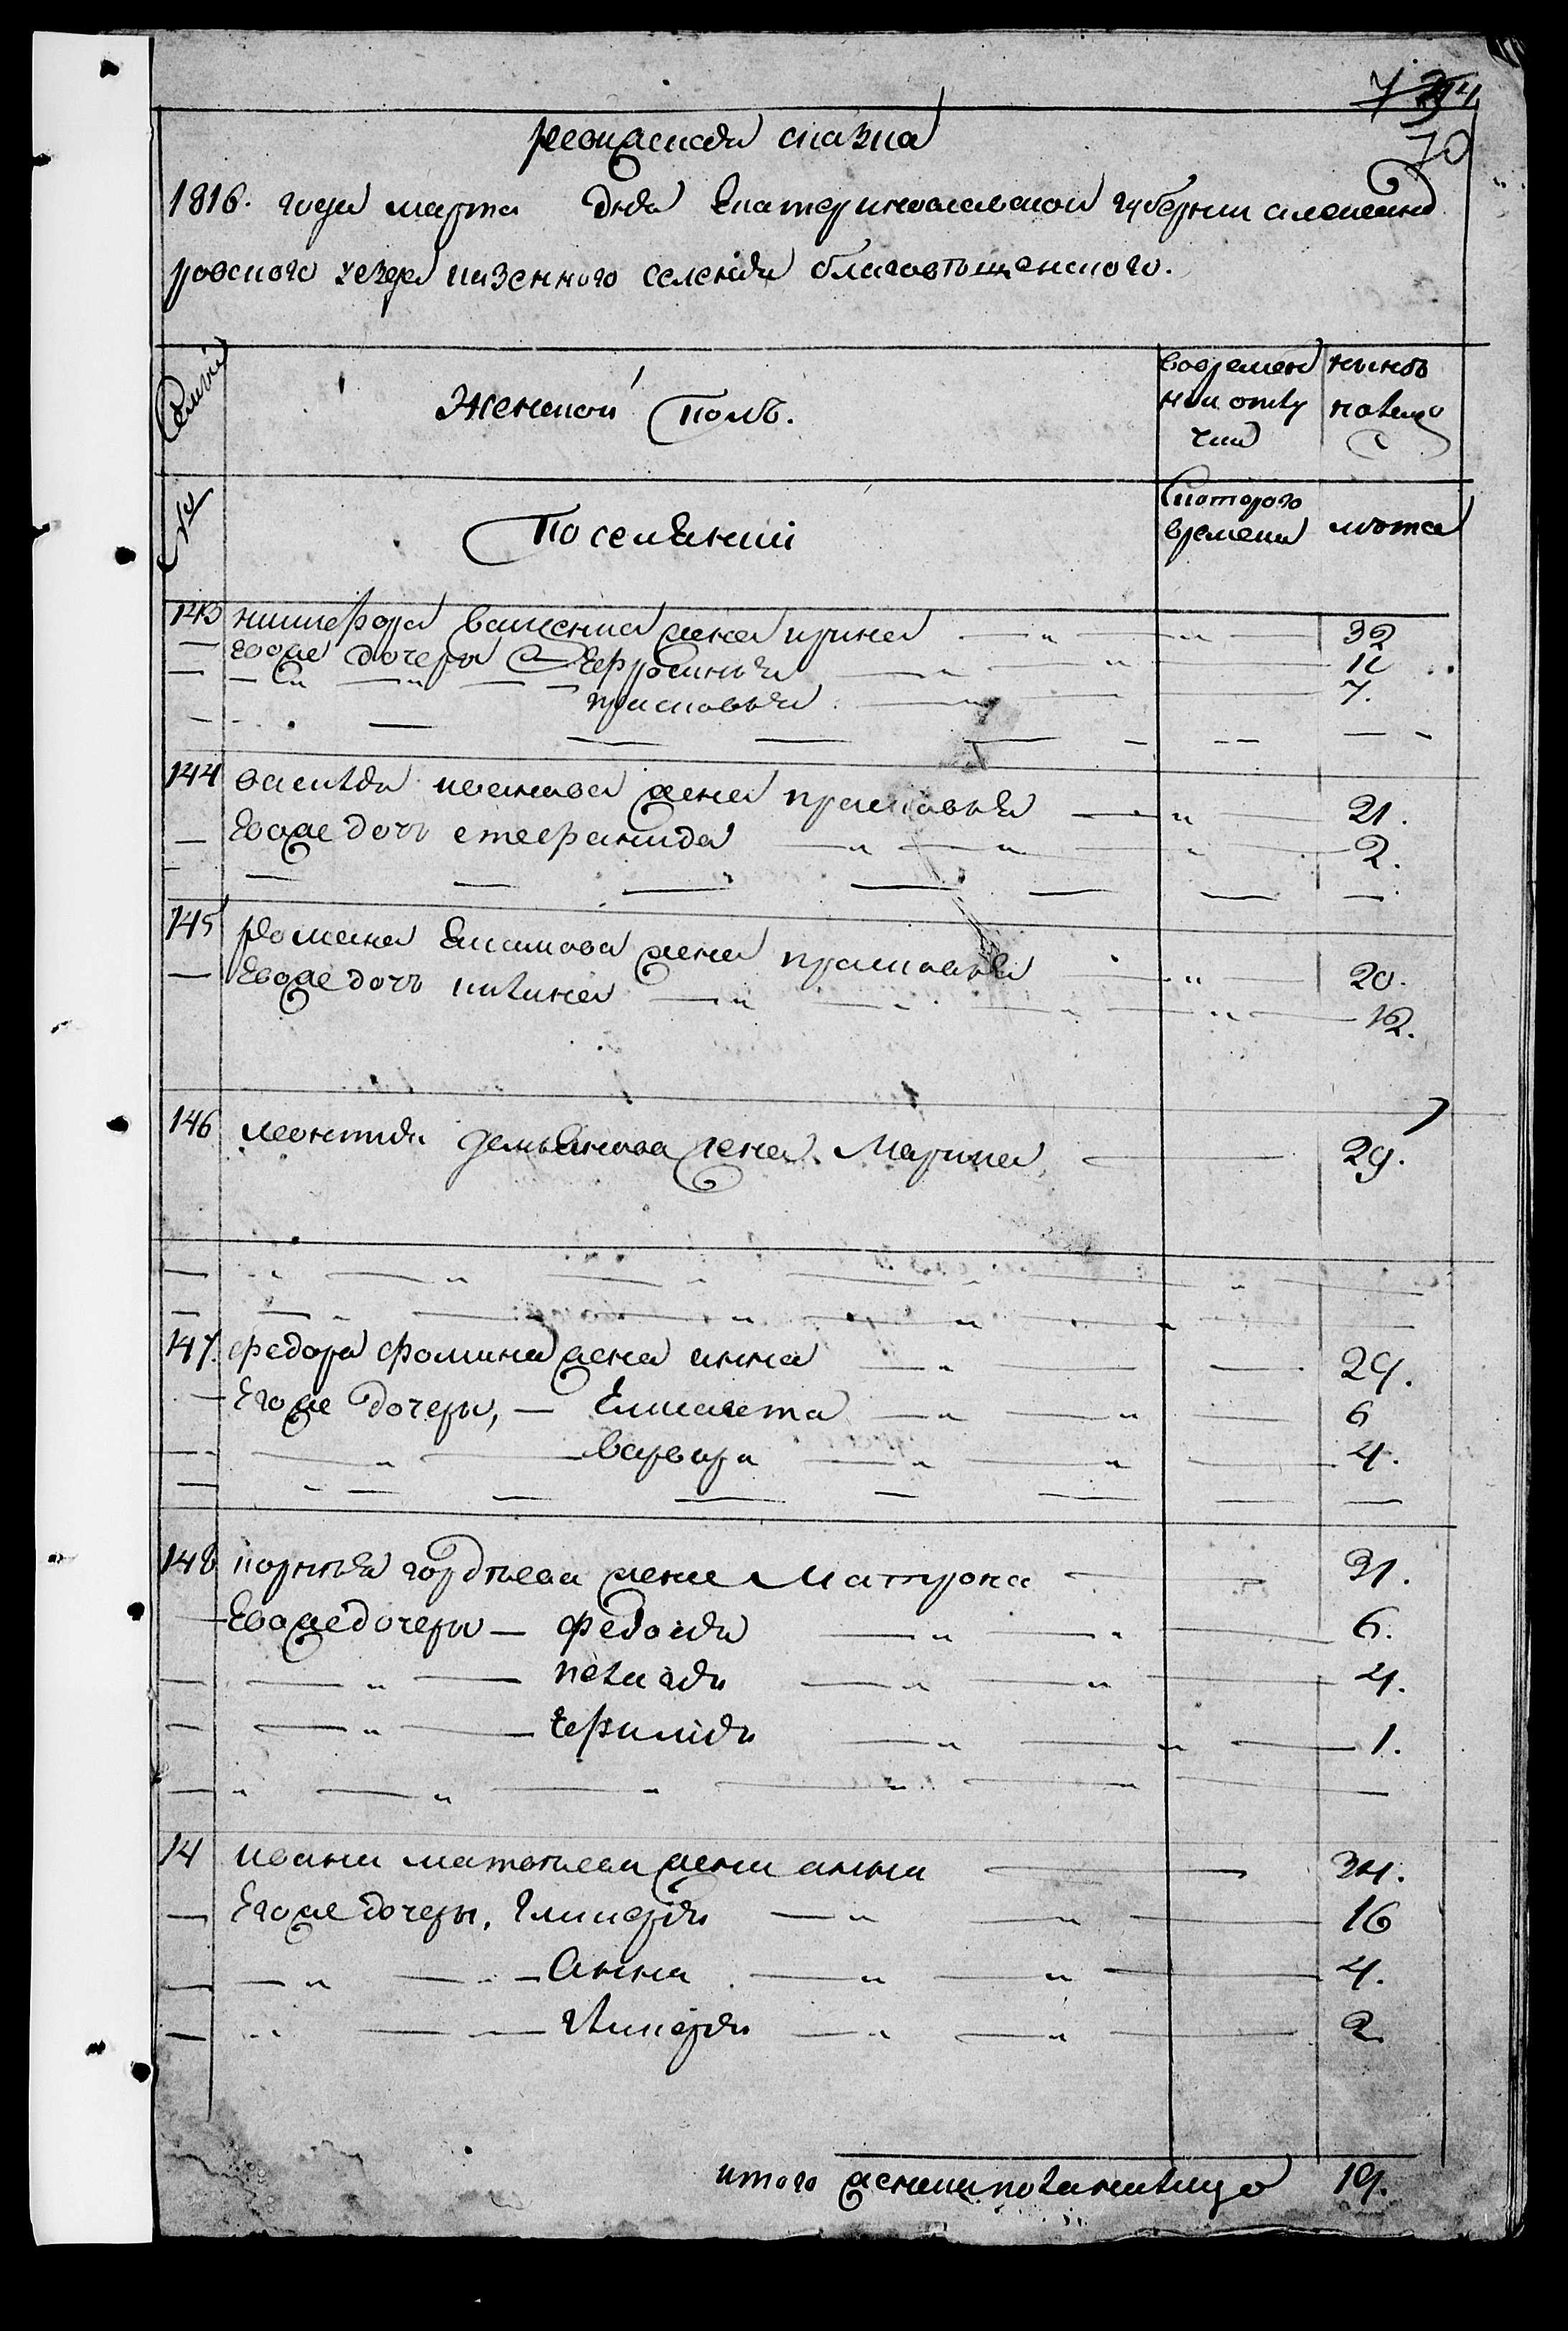 70
ревижская сказка
1816. года марта дня Екатеринославской губернии александ
ровского уезда казенного селения благовѣщенского.
Семьи
Женской полъ.
Вовремен
ной отлу
чки
нынѣ
налицо
№
Поселянки
Скоторого
времени
лѣта
143 никифора жена ирина 32
Евоже дочеры Ефросинья 11
прасковья 7.
144 василия иванова жена прасковья 21.
Евоже дочь стефанида 2.
145 романа жена прасковья 20.
Евоже дочь 12.
146 леонтия демьянова жена Марина 29.
147. федора фомина жена анна 29.
Егоже дочеры, — Елисавета 6
варвара 4.
148 корнѣя гордѣева жена Матрона 31.
Евоже дочеры — федосия 6.
пелагия 4.
Ефимия 1.
14 ивана матвѣева жена анна 34.
Егоже дочеры, Гликерия 16
Анна 4.
Гликерия 2
итого женска пола налицо 19.